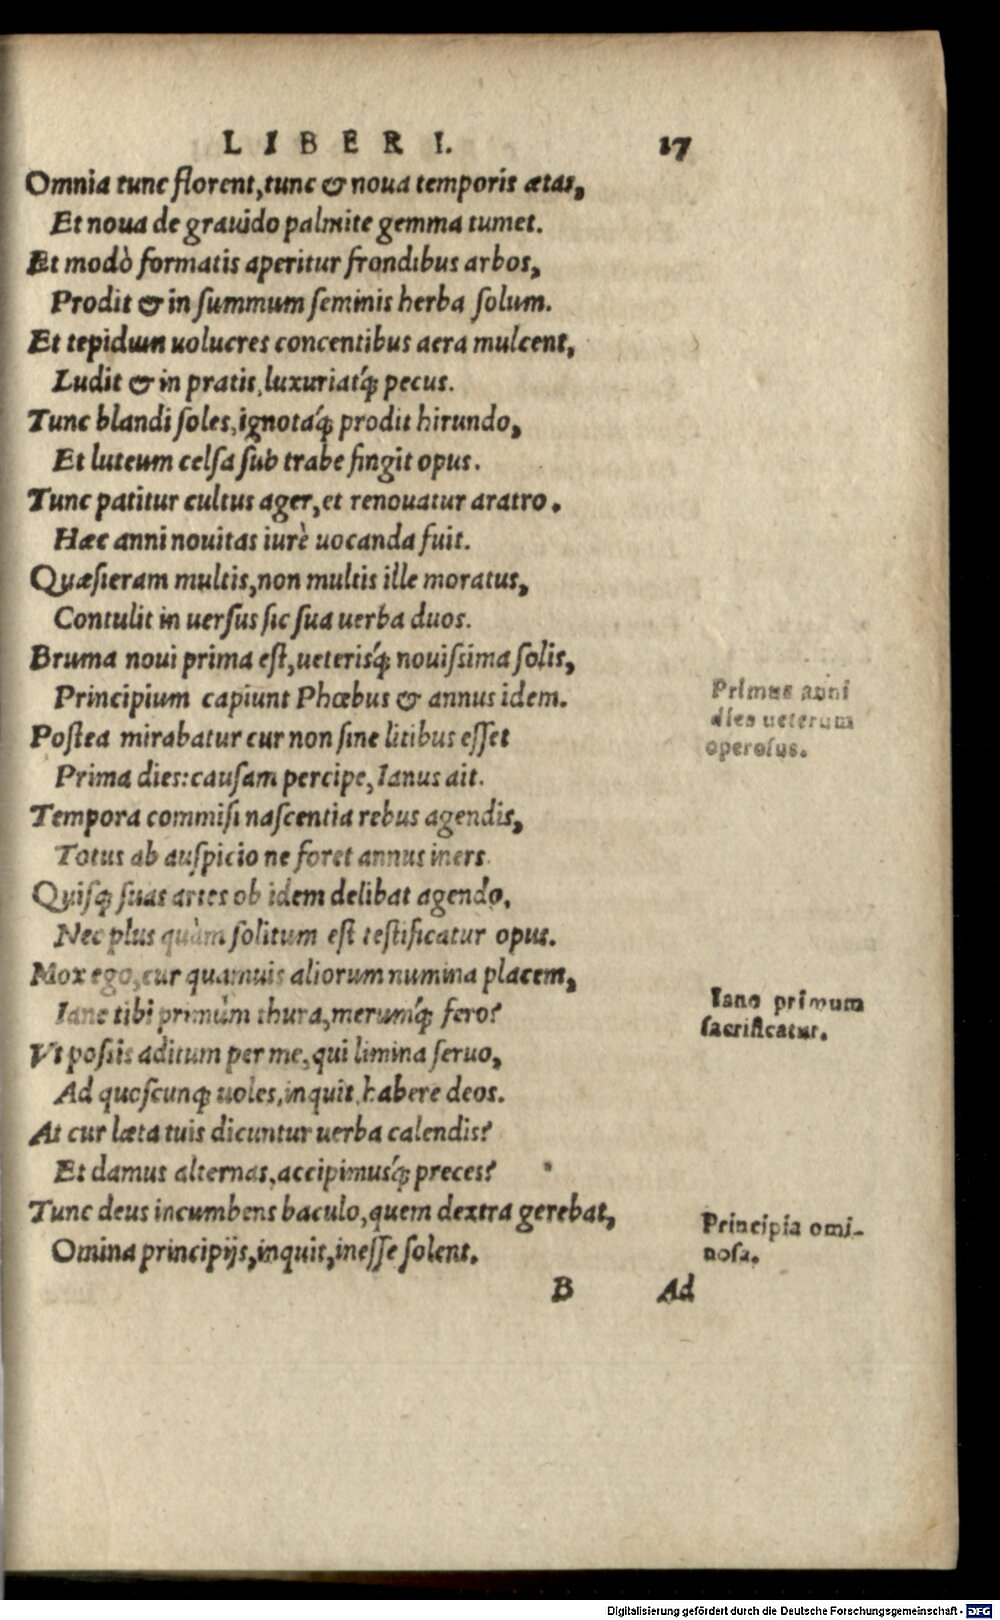 LIBER I. 17
Omnia tunc florent, tunc & noua temporis ætas,
Et noua de grauido palmite gemma tumet.
Et modò formatis aperitur frondibus arbos,
Prodit & in summum seminis herba solum.
Et tepidum uolucres concentibus aera mulcent,
Ludit & in pratis, luxuriatq́; pecus.
Tunc blandi soles, ignotaq́; prodit hirundo,
Et luteum celsa sub trabe fingit opus.
Tunc patitur cultus ager, et renouatur aratro.
Hæc anni nouitas iurè uocanda fuit.
Quæsieram multis, non multis ille moratus,
Contulit in uersus sic sua uerba duos.
Bruma noui prima est, ueterisq́; nouissima solis,
Principium capiunt Phœbus & annus idem.
Postea mirabatur cur non sine litibus esset
Prima dies: causam percipe, Ianus ait.
Tempora commisi nascentia rebus agendis,
Totus ab auspicio ne foret annus iners.
Quisq; suas artes ob idem delibat agendo,
Nec plus quàm solitum est testificatur opus.
Mox ego, cur quamuis aliorum numina placem,
Iane tibi primùm thura, merumq́; fero?
Vt possis aditum per me, qui limina seruo,
Ad quoscunq; uoles, inquit, habere deos.
At cur læta tuis dicuntur uerba calendis?
Et damus alternas, accipimusq́; preces?
Tunc deus incumbens baculo, quem dextra gerebat,
Omina principijs, inquit, inesse solent.
B Ad
Primus anni
dies ueterum
operosus.
Iano primum
sacrificatur.
Principia omi-
nosa.
Digitalisierung gefördert durch die Deutsche Forschungsgemeinschaft - DFG